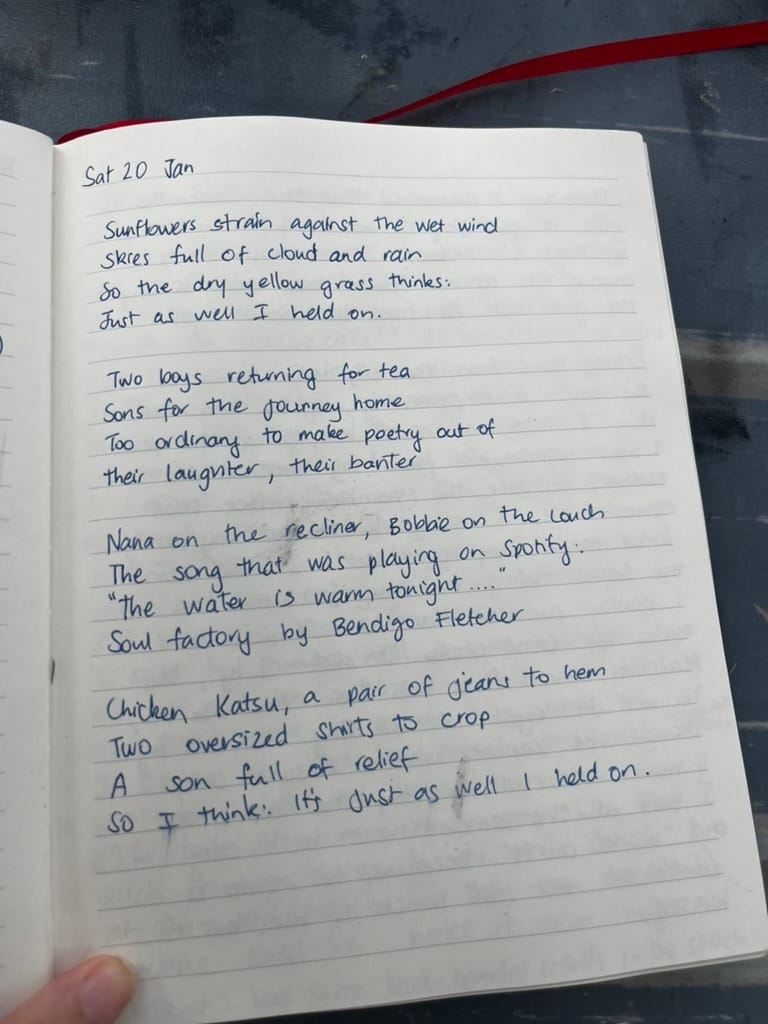 Sat 20 Jan
Sunflowers strain against the wet wind
Skies full of cloud and rain
So the dry yellow grass thinks:
Just as well I held on.
Two boys returning for tea
Sons for the journey home
Too ordinary to make poetry out of
their laughter, their banter
Nana on the recliner, Bobbie on the couch
The song that was playing on Spotify:
"The water is warm tonight...."
Soul factory by Bendigo Fletcher
Chicken Katsu, a pair of jeans to hem
Two oversized shirts to crop
A son full of relief
So I think: It's just as well I held on.